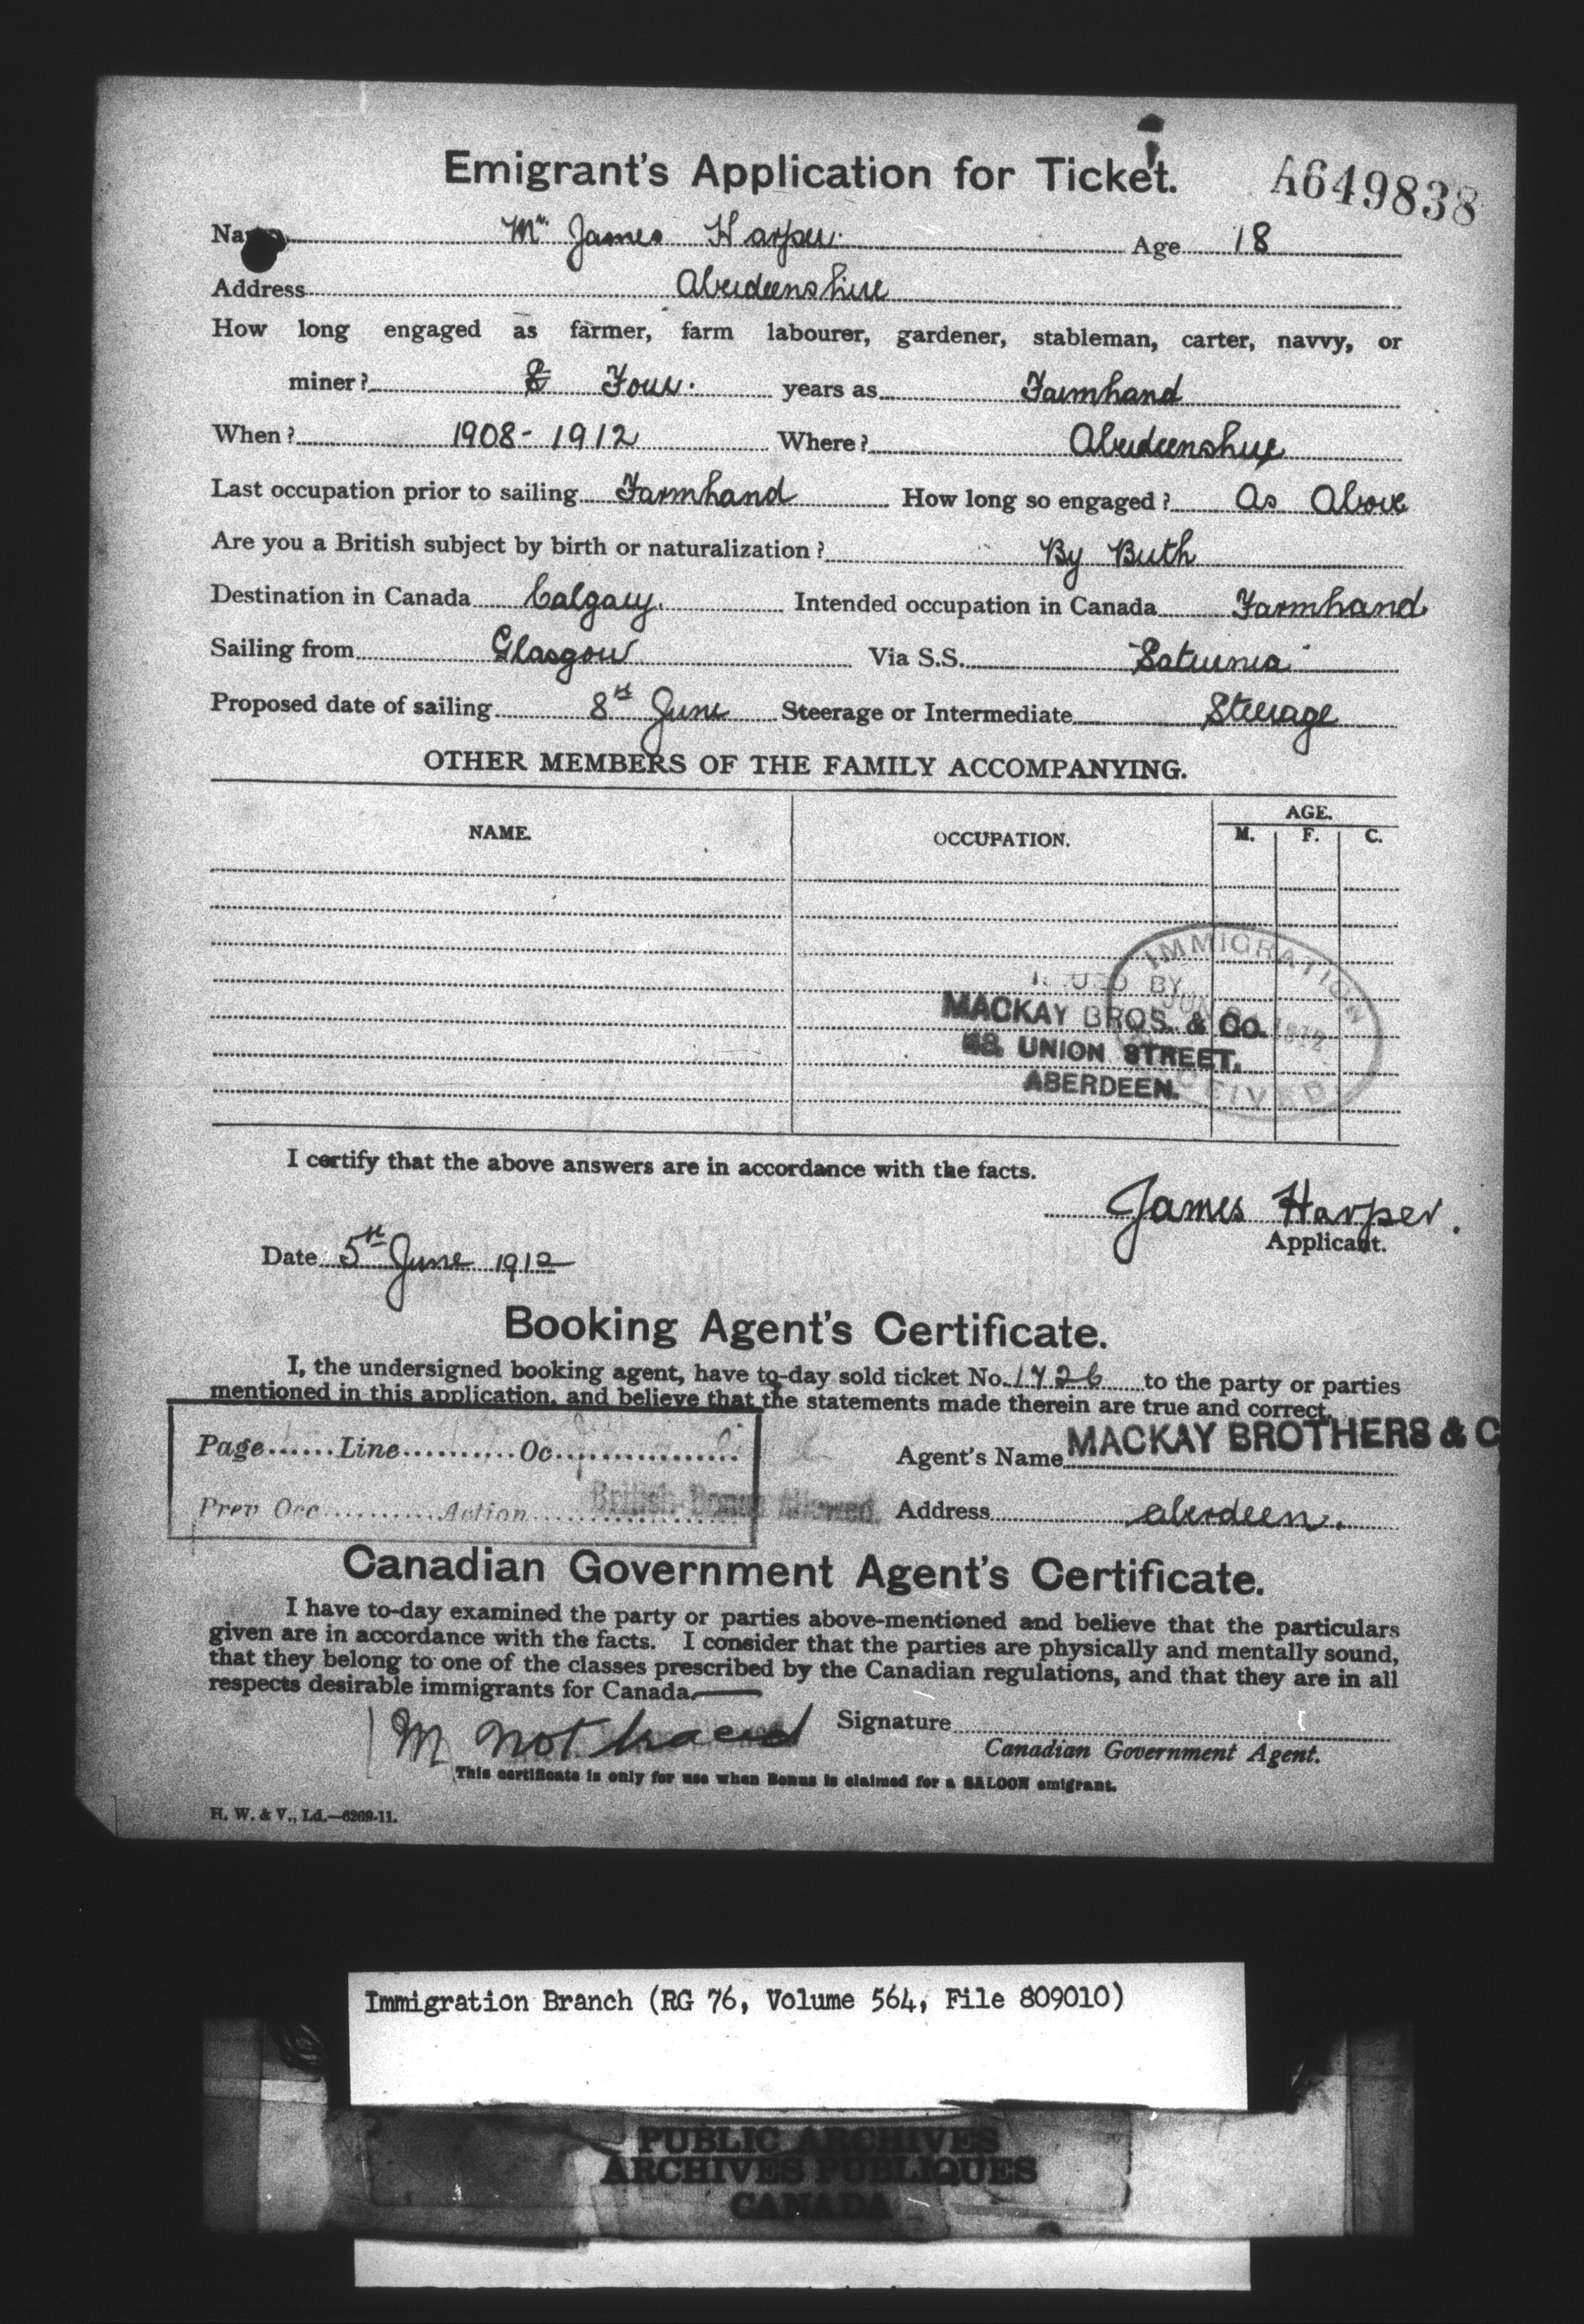 Emigrant's Application for Ticket.
A649838
Mr. James Harper. Age 18
Address Aberdeenshire
How long engaged as farmer, farm labourer, gardener, stableman, carter, navvy, or
miner? Four. years as Farmhand
When? 1908-1912 Where? Aberdeenshire
Last occupation prior to sailing Farmhand How long so engaged? As Above
Are you a British subject by birth or naturalization? By Birth
Destination in Canada Calgary. Intended occupation in Canada Farmhand
Sailing from Glasgow Via S.S. "Saturnia"
Proposed date of sailing 8th June Steerage or Intermediate Steerage
OTHER MEMBERS OF THE FAMILY ACCOMPANYING.
NAME. OCCUPATION. AGE.
M. F. C.
IMMIGRATION
BY
MACKAY BROS. & Co.
UNION STREET,
ABERDEEN.
I certify that the above answers are in accordance with the facts.
James Harper.
Applicant.
Date 5th June 1912
Booking Agent's Certificate.
I, the undersigned booking agent, have to-day sold ticket No. 1726 to the party or parties
mentioned in this application, and believe that the statements made therein are true and correct.
Page......Line..........Oc................
Agent's Name MACKAY BROTHERS & C
Prev Occ..........Action................
British Bonus Allowed.
Address aberdeen.
Canadian Government Agent's Certificate.
I have to-day examined the party or parties above-mentioned and believe that the particulars
given are in accordance with the facts. I consider that the parties are physically and mentally sound,
that they belong to one of the classes prescribed by the Canadian regulations, and that they are in all
respects desirable immigrants for Canada.
M not traced
Signature
Canadian Government Agent.
This certificate is only for use when Bonus is claimed for a SALOON emigrant.
H. W. & V., Ld.—6269-11.
Immigration Branch (RG 76, Volume 564, File 809010)
PUBLIC ARCHIVES
ARCHIVES PUBLIQUES
CANADA